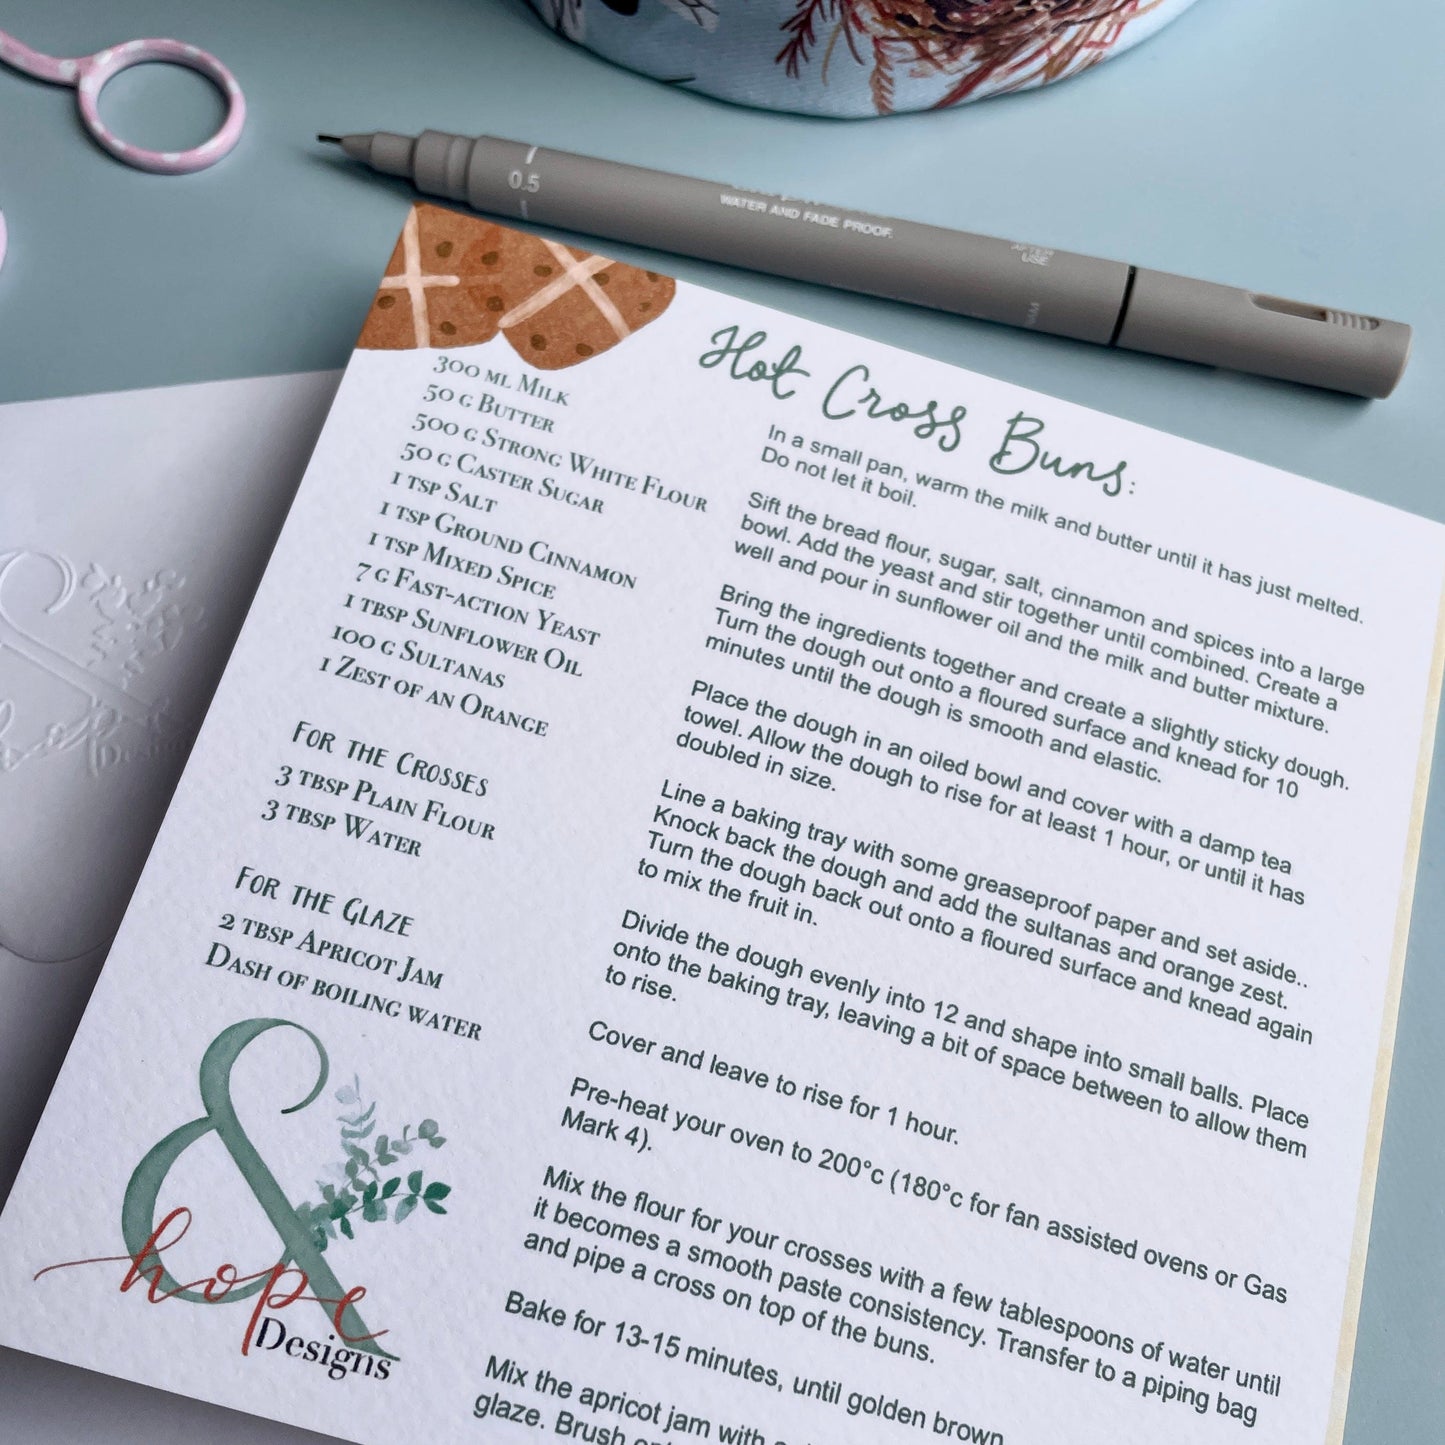 0.5
WATER AND FADE PROOF.
AFTER
USE
Hot Cross Buns:
300 ml Milk
50 g Butter
500 g Strong White Flour
50 g Caster Sugar
1 tsp Salt
1 tsp Ground Cinnamon
1 tsp Mixed Spice
7 g Fast-action Yeast
1 tbsp Sunflower Oil
100 g Sultanas
1 Zest of an Orange
For the Crosses
3 tbsp Plain Flour
3 tbsp Water
For the Glaze
2 tbsp Apricot Jam
Dash of boiling water
&
hope
Designs
In a small pan, warm the milk and butter until it has just melted.
Do not let it boil.
Sift the bread flour, sugar, salt, cinnamon and spices into a large
bowl. Add the yeast and stir together until combined. Create a
well and pour in sunflower oil and the milk and butter mixture.
Bring the ingredients together and create a slightly sticky dough.
Turn the dough out onto a floured surface and knead for 10
minutes until the dough is smooth and elastic.
Place the dough in an oiled bowl and cover with a damp tea
towel. Allow the dough to rise for at least 1 hour, or until it has
doubled in size.
Line a baking tray with some greaseproof paper and set aside..
Knock back the dough and add the sultanas and orange zest.
Turn the dough back out onto a floured surface and knead again
to mix the fruit in.
Divide the dough evenly into 12 and shape into small balls. Place
onto the baking tray, leaving a bit of space between to allow them
to rise.
Cover and leave to rise for 1 hour.
Pre-heat your oven to 200°c (180°c for fan assisted ovens or Gas
Mark 4).
Mix the flour for your crosses with a few tablespoons of water until
it becomes a smooth paste consistency. Transfer to a piping bag
and pipe a cross on top of the buns.
Bake for 13-15 minutes, until golden brown
Mix the apricot jam with
glaze. Brush